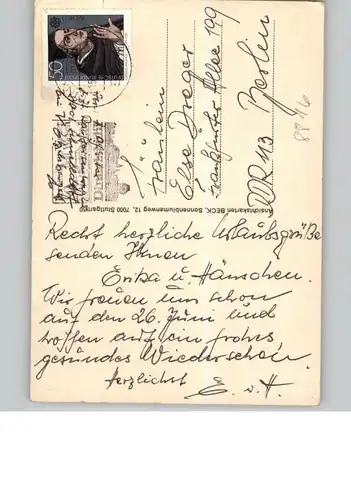 50
DEUTSCHE BUNDESPOST
Fräulein
Else Dreger
Frankfurter Allee 199
DDR 113 Berlin
8846
Ansichtskarten BECK, Sonnenblumenweg 12, 7000 Stuttgart
Recht herzliche Urlaubsgrüße
senden Ihnen
Erika u. Hänschen.
Wir freuen uns schon
auf den 26. Juni und
hoffen auf ein frohes,
gesundes Wiedersehen.
Herzlichst E. u. H.